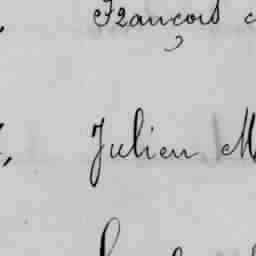 François
Julien M